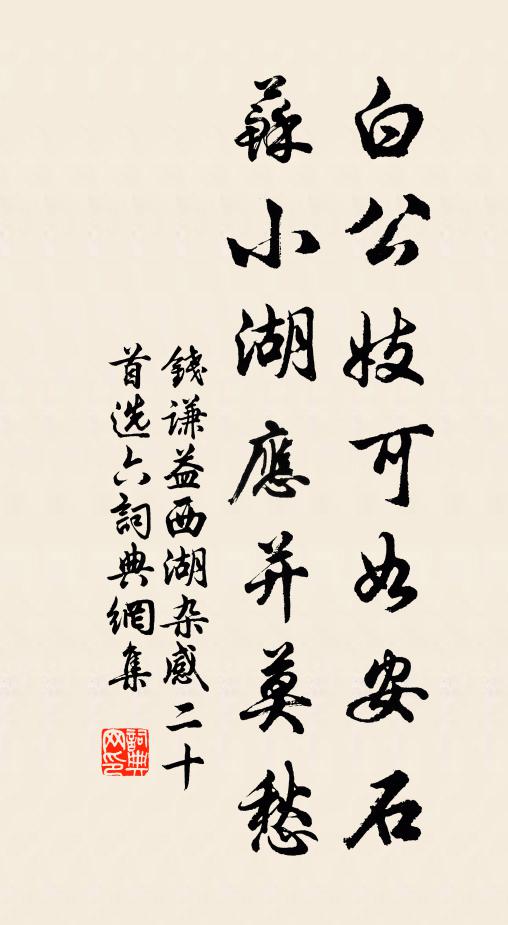 白公妓可如安石
蘇小湖應并莫愁
錢謙益西湖杂感二十
首选六詞典網集
詞典网印